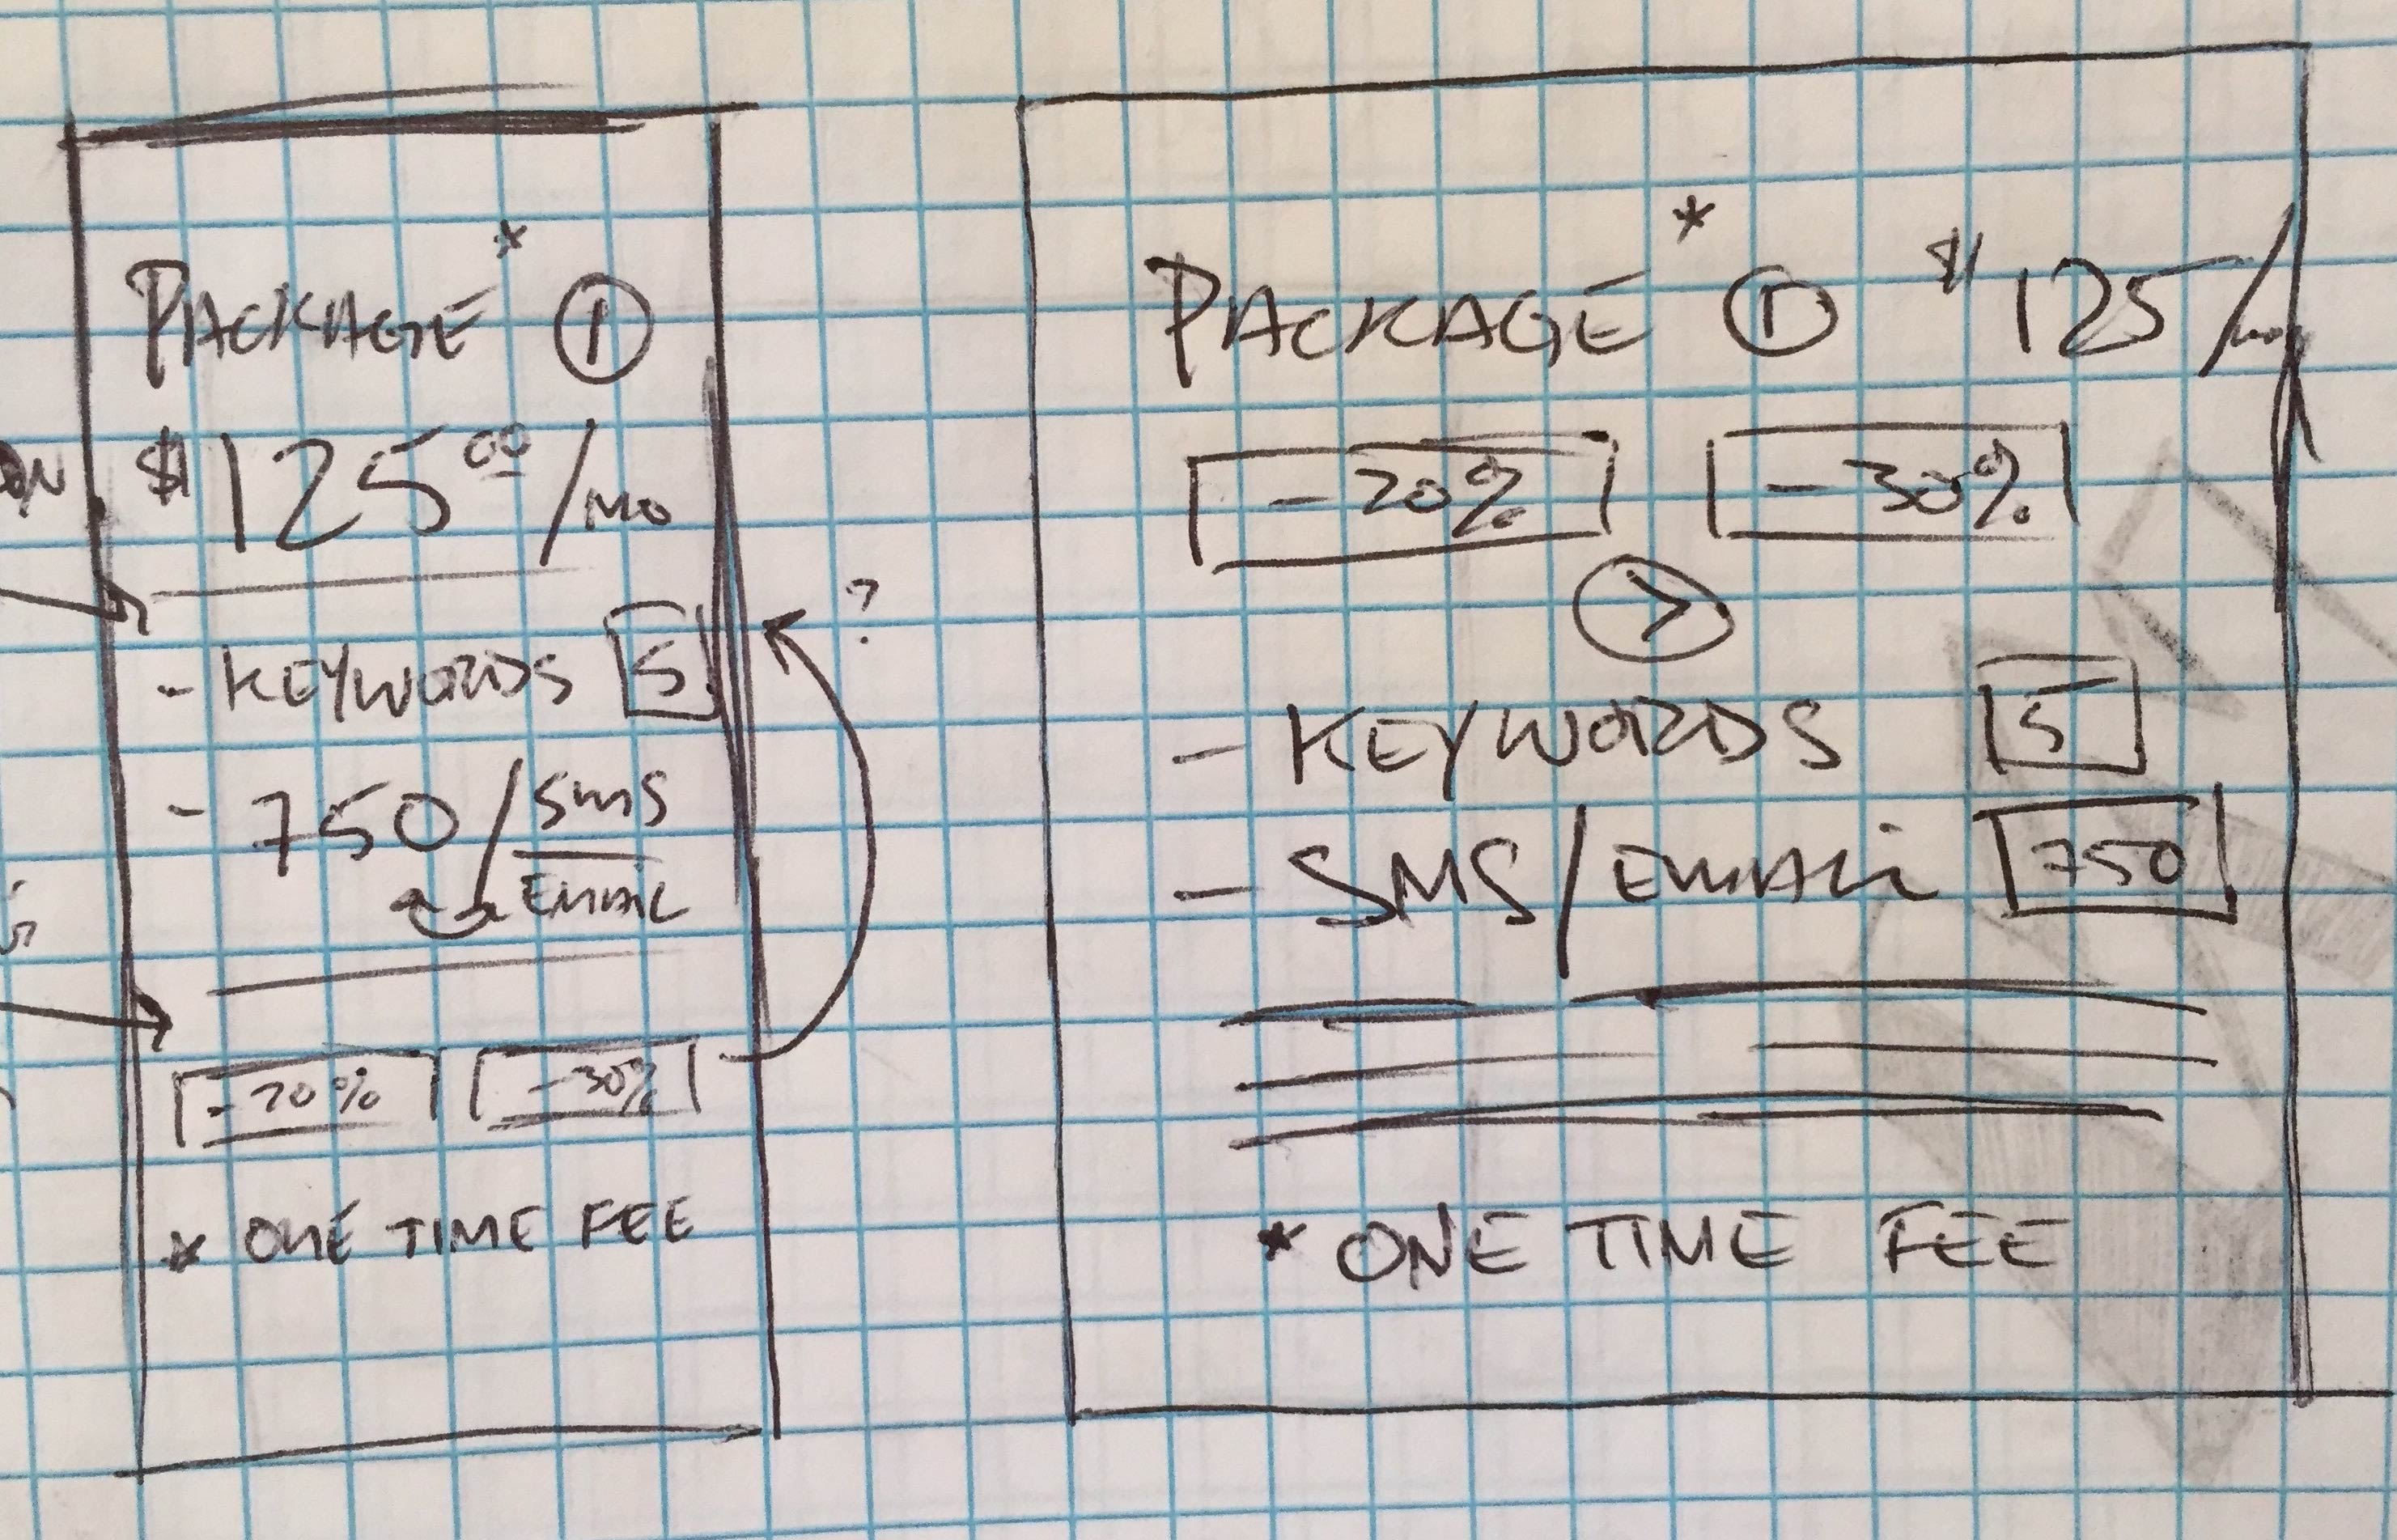 *
PACKAGE 1
$125 00/MO
- KEYWORDS 5
- 750/SMS
EMAIL
-20% -30%
* ONE TIME FEE
?
*
PACKAGE 1 $125/mo
-20% -30%
>
- KEYWORDS 5
- SMS/EMAIL 750
* ONE TIME FEE